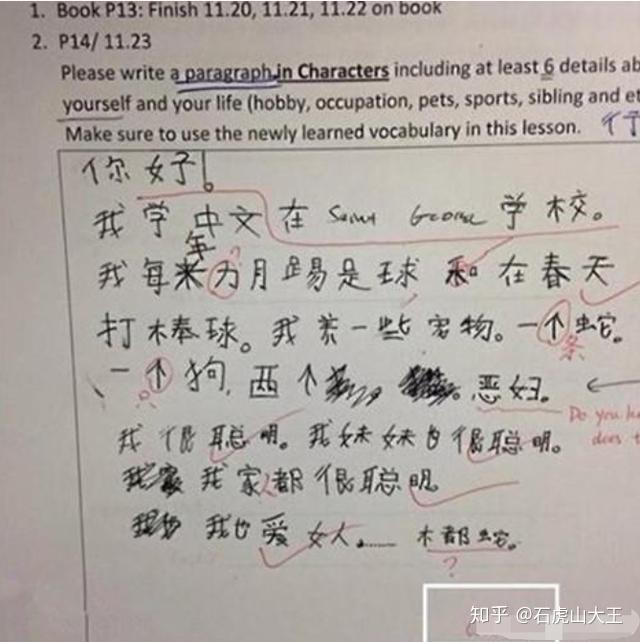 1. Book P13: Finish 11.20, 11.21, 11.22 on book
2. P14/ 11.23
Please write a paragraph in Characters including at least 6 details ab
yourself and your life (hobby, occupation, pets, sports, sibling and et
Make sure to use the newly learned vocabulary in this lesson.
你好!
我学中文在 George 学校。
年
我每来力月踢是球和在春天
打棒球。我养一些宠物。一个蛇。
条
一个狗,两个 恶妇。
只
Do you ha
does t
我很聪明。我妹妹也很聪明。
我家都很聪明
我也爱女人…… 木都蛇。
?
知乎 @石虎山大王